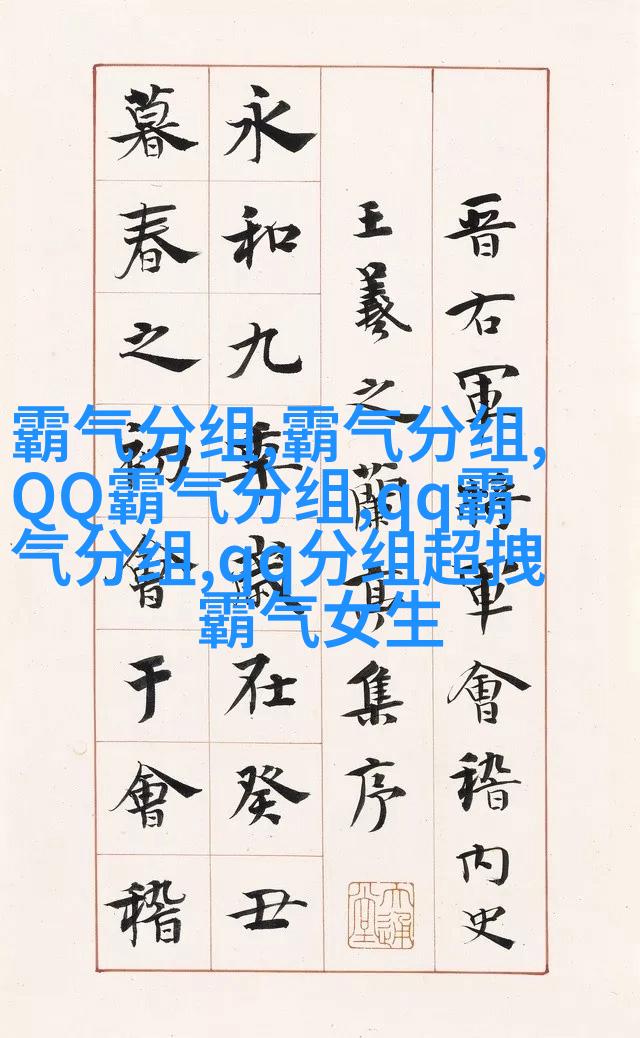 晋右軍將軍會稽内史
王羲之蘭亭集序
永和九年歲在癸丑
暮春之初會于會稽
霸气分组,霸气分组,
QQ霸气分组,qq霸
气分组,qq分组超拽
霸气女生